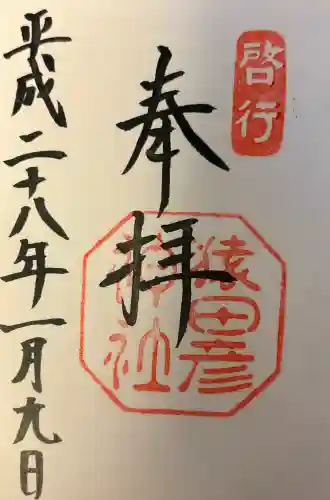 啓行
奉拝
猿田彦
神社
平成二十八年一月九日